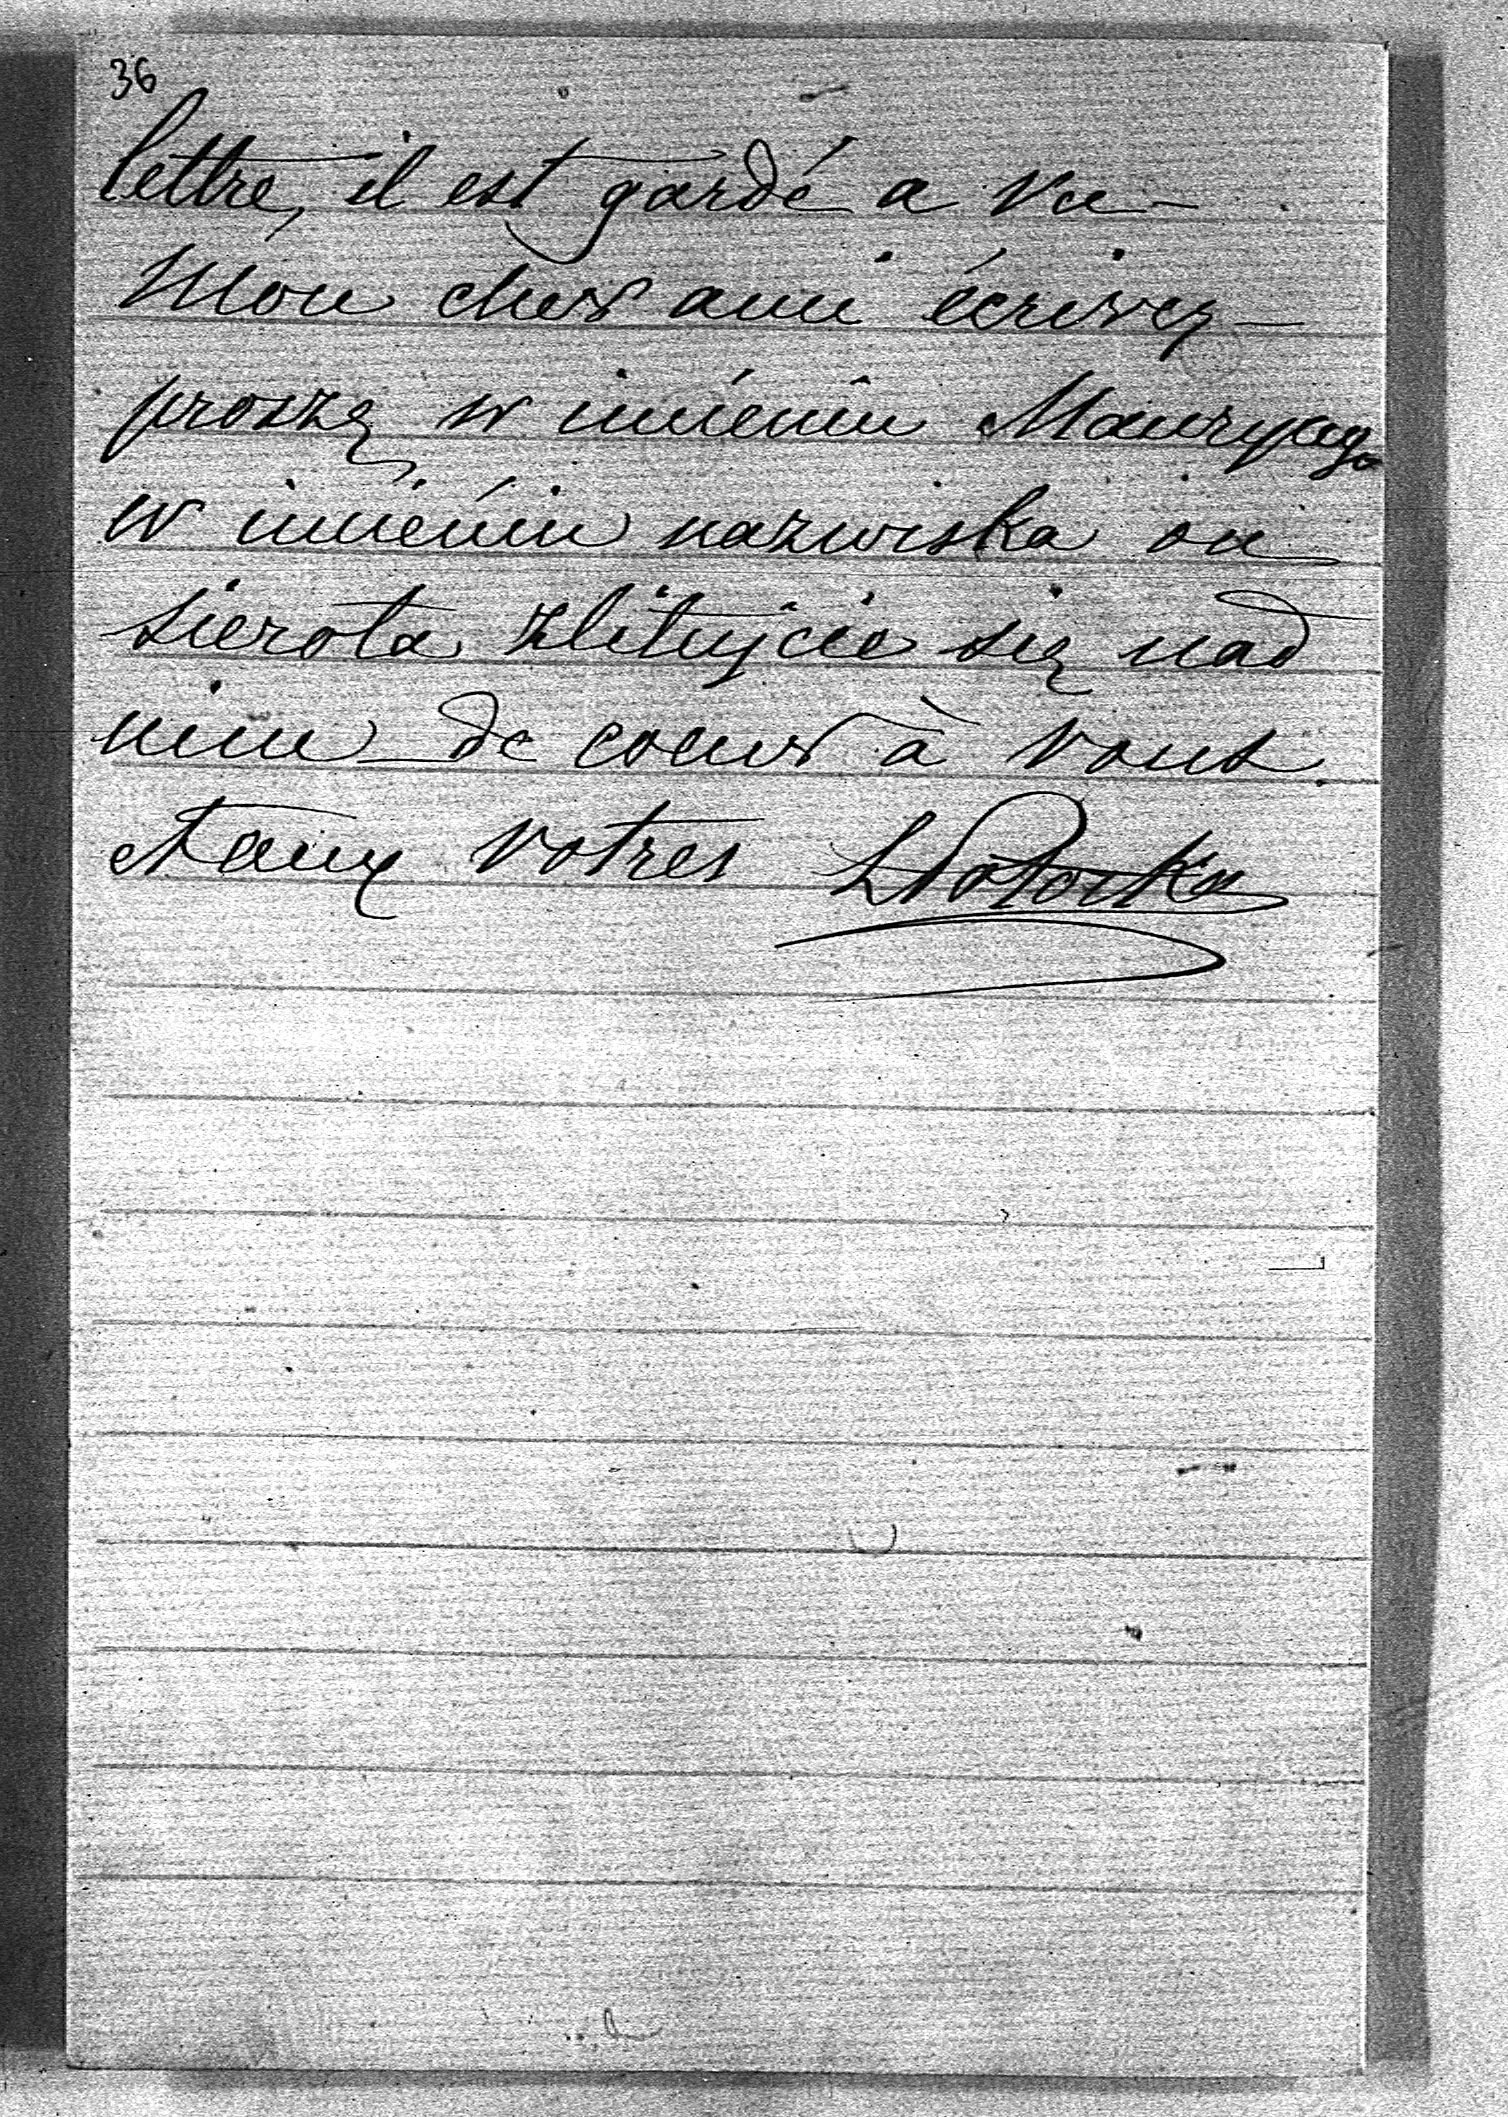 36
lettre, il est gardé a vu —
Mon cher ami écrivez —
proszę w imieniu Maurycego
w imieniu nazwiska on
sierota zlitujcie się nad
nim — de coeur à vous
et aux votres LPotocka